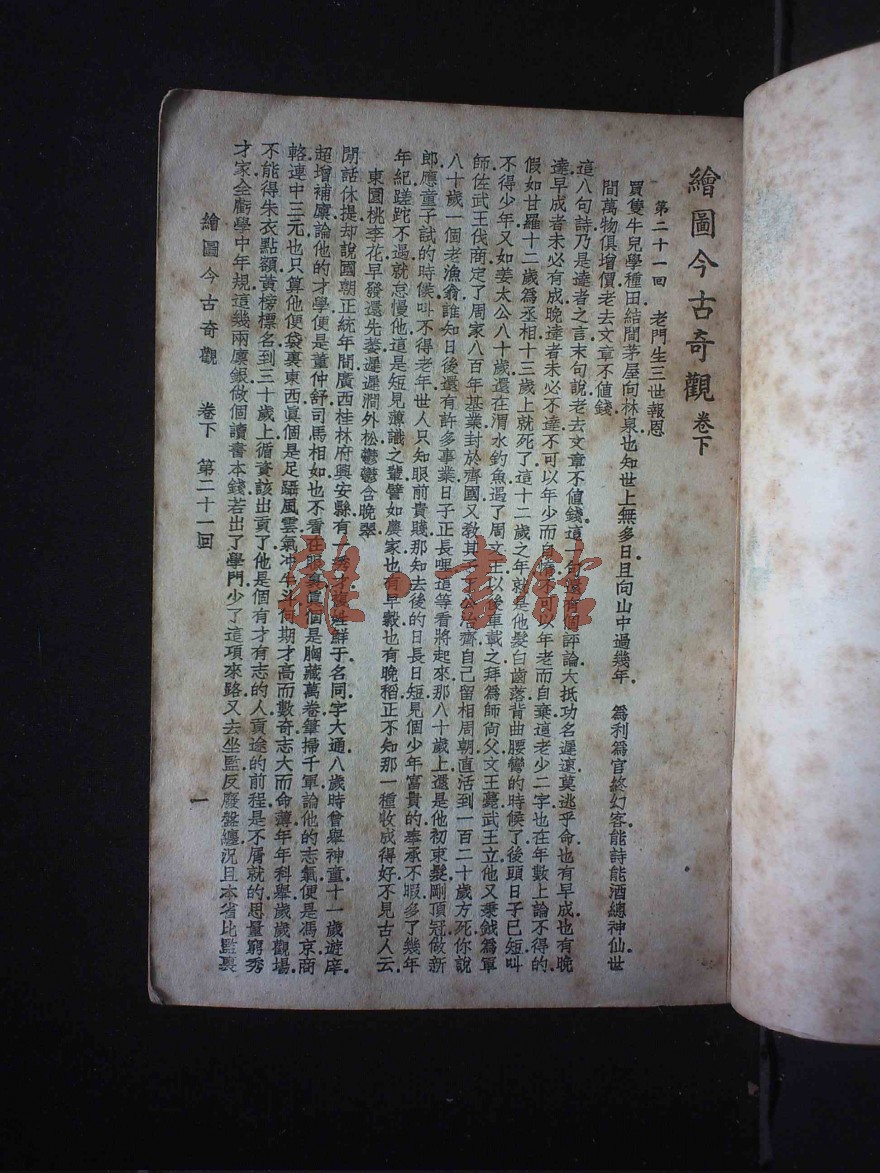 繪圖今古奇觀 卷下
第二十一回 老門生三世報恩
買隻牛兒學種田結間茅屋向林泉也知世上無多日且向山中過幾年 爲利爲官終幻客能詩能酒總神仙世
間萬物俱增價老去文章不值錢
這八句詩乃是達者之言末句說老去文章不值錢這一句還有個評論大抵功名遲速莫逃乎命也有早成也有晚
達早成者未必有成晚達者未必不達不可以年少而自恃不可以年老而自棄這老少二字也在年數上論不得的
假如甘羅十二歲爲丞相十三歲上就死了這十二歲之年就是他髮白齒落背曲腰彎的時候了後頭日子已短叫
不得少年又如姜太公八十歲還在渭水釣魚遇了周文王以後車載之拜爲師尙父文王薨武王立他又秉鉞爲軍
師佐武王伐商定了周家八百年基業封於齊國又敎其子丁公治齊自己留相周朝直活到一百二十歲方死你說
八十歲一個老漁翁誰知日後還有許多事業日子正長哩這等看將起來那八十歲上還是他初束髮剛頂冠做新
郎應童子試的時候叫不得老年世人只知眼前貴賤那知去後的日長日短見個少年富貴的奉承不暇多了幾年
年紀蹉跎不遇就怠慢他這是短見薄識之輩譬如農家也有早穀也有晚稻正不知那一種收成得好不見古人云
東園桃李花早發還先萎遲遲澗外松鬱鬱含晚翠
閒話休提却說國朝正統年間廣西桂林府興安縣有一秀才複姓鮮于名同字大通八歲時曾舉神童十一歲遊庠
超增補廩論他的才學便是董仲舒司馬相如也不看在眼裏眞個是胸藏萬卷筆掃千軍論他的志氣便是馮京商
輅連中三元也只算他便袋裏東西眞個是足躡風雲氣沖牛斗何期才高而數奇志大而命薄年年科舉歲歲觀場
不能得朱衣點額黃榜標名到三十歲上循資該出貢了他是個有才有志的人貢途的前程是不屑就的思量窮秀
才家全虧學中年規這幾兩廩銀做個讀書本錢若出了學門少了這項來路又去坐監反廢盤纏況且本省比監裏
繪圖今古奇觀 卷下 第二十一回 一
雜·書館